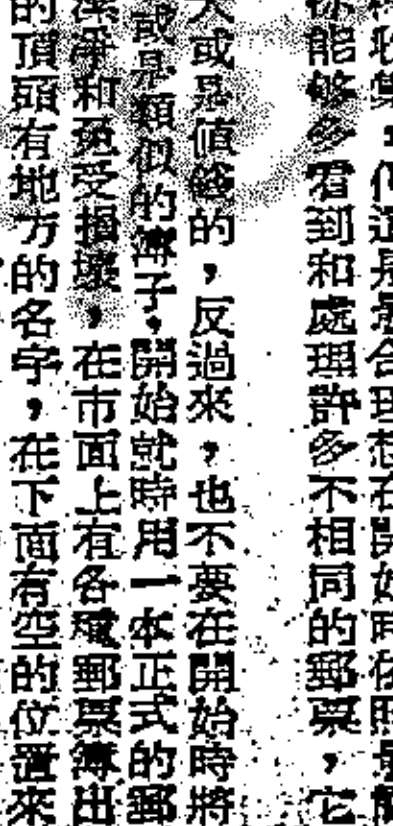 能够多看到和處理許多不相同的郵票，它
大或是值錢的，反過來，也不要在開始時將
或是類似的簿子，開始就時用一本正式的郵
潔淨和免受損壞，在市面上有各種郵票簿出
的頂頭有地方的名字，在下面有空的位置來